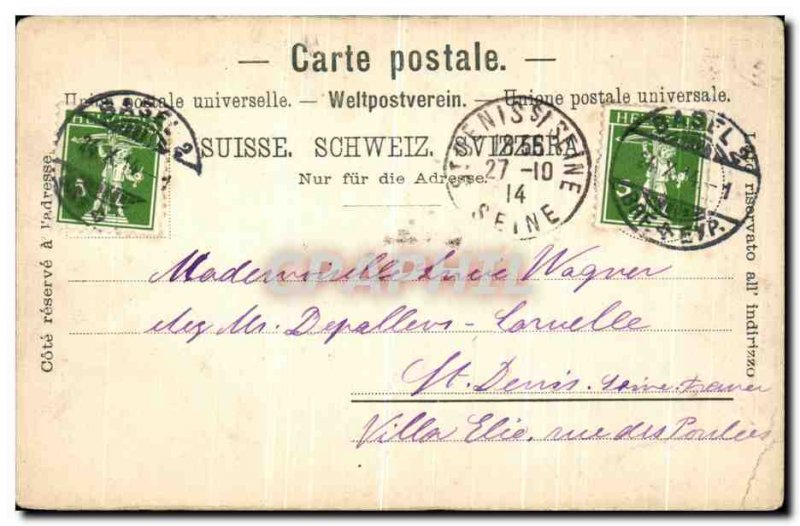 — Carte postale. —
Union postale universelle. — Weltpostverein. — Unione postale universale.
SUISSE. SCHWEIZ. SVIZZERA
Nur für die Adresse.
Côté réservé à l'adresse
Lato riservato all' indirizzo
HELVETIA
5
BASEL 2
ST DENIS S/SEINE
18 35
27-10
14
SEINE
HELVETIA
5
BASEL 2
BRF. EXP.
GRAPHIL
Mademoiselle Wagner
chez Mr. Depallens - Cornelle
St. Denis. Seine. France
Villa Elie, rue des Poulies